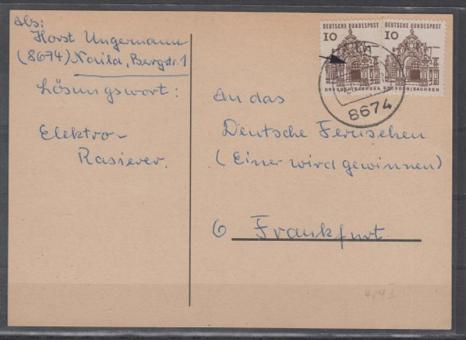 abs:
Horst Ungermann
(8674) Naila, Burgstr. 1
Lösungswort:
Elektro-
Rasierer.
DEUTSCHE BUNDESPOST
10
DRESDEN/SACHSEN
DEUTSCHE BUNDESPOST
10
DRESDEN/SACHSEN
8674
An das
Deutsche Fernsehen
(Einer wird gewinnen)
6 Frankfurt